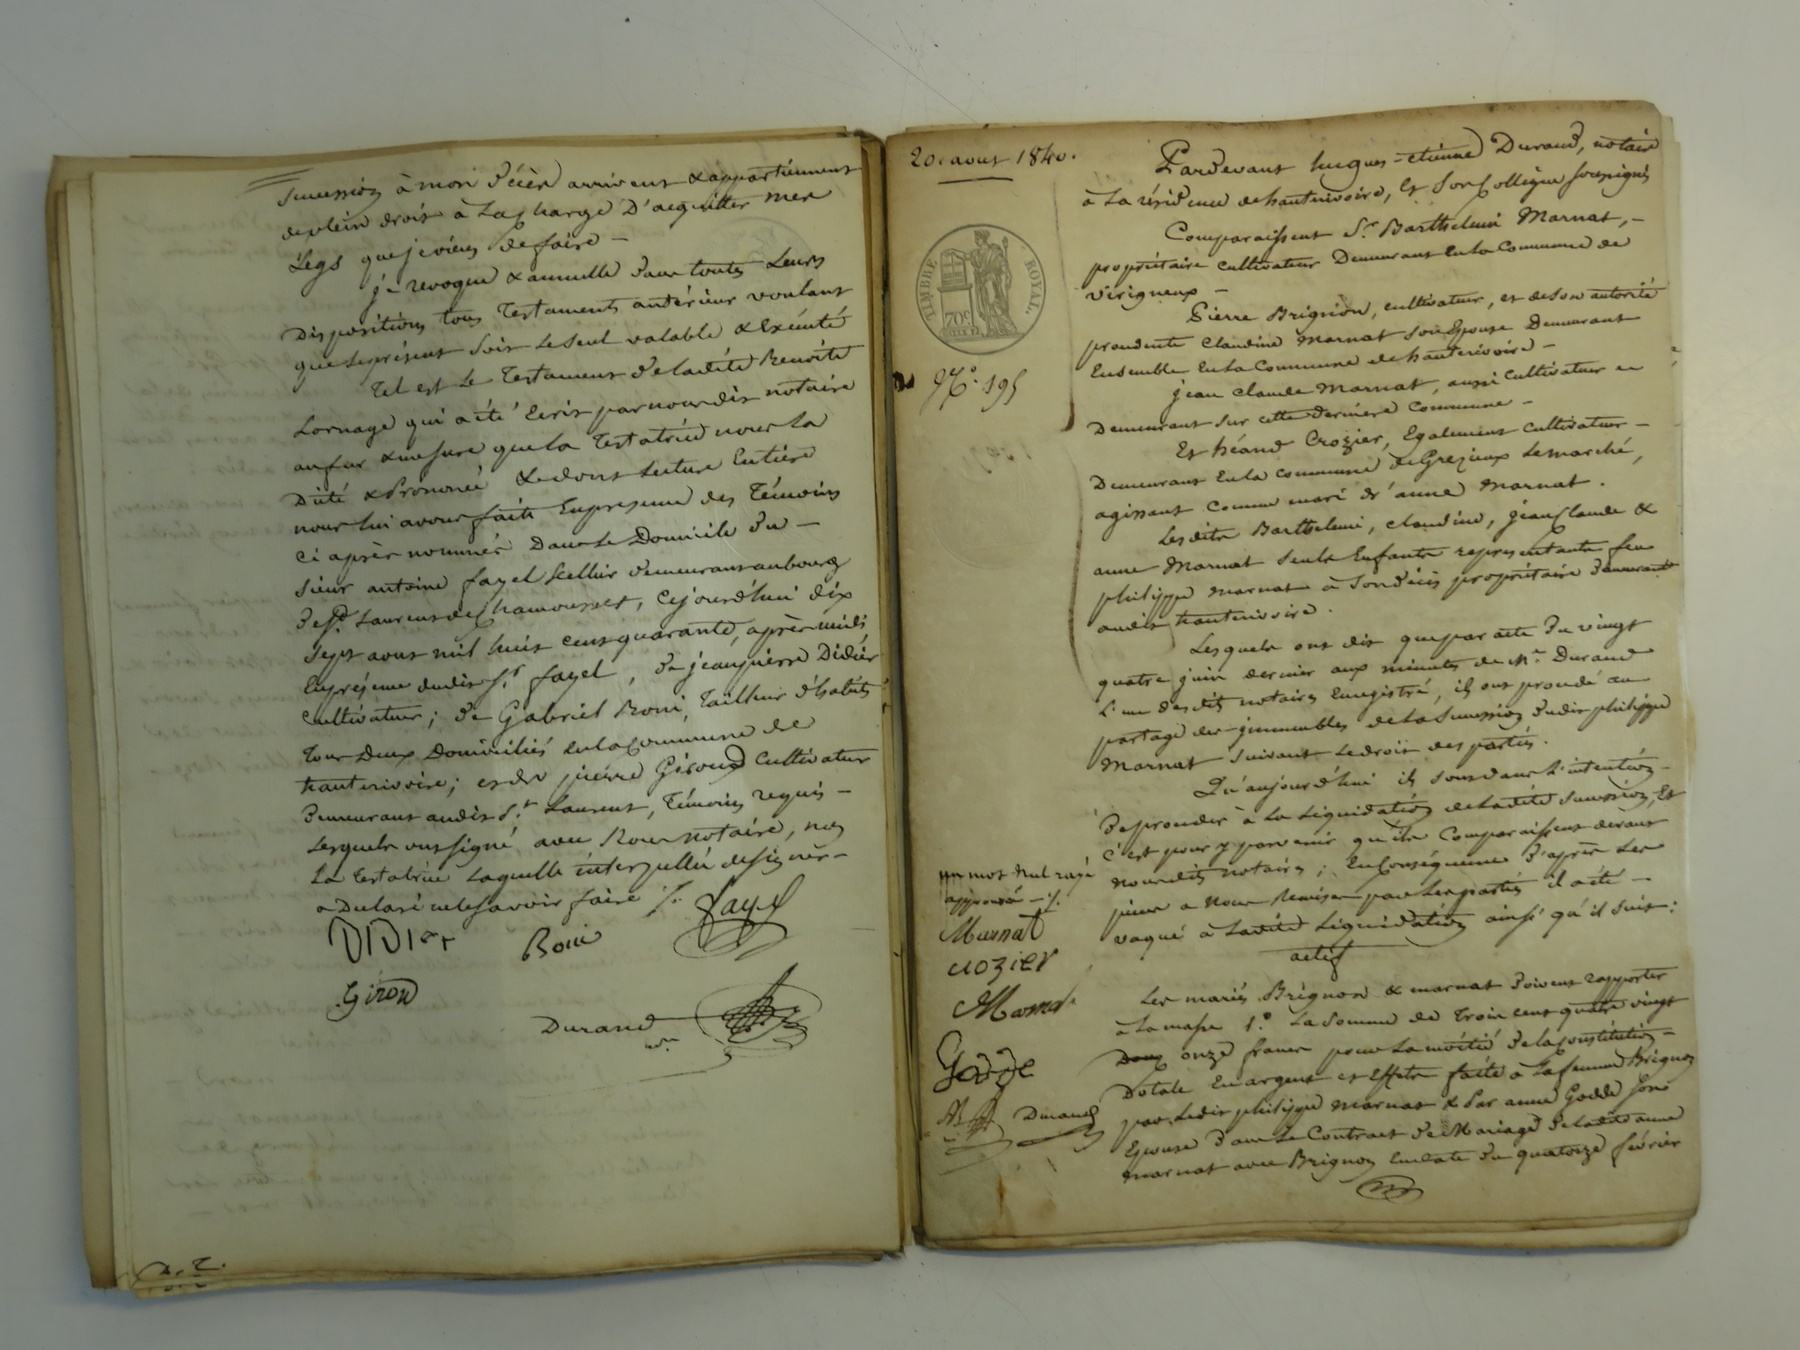 succession à mon décès arrivent & appartiennent
de plein droit à la charge d'acquitter mes
Legs que je viens de faire —
je revoque & annulle dans toutes Leurs
Dispositions tous Testaments antérieur voulant
que le présent soit Le seul valable & Exécuté
Tel est Le Testament de ladite Benoîte
Lornage qui a été Ecrit par nous dit notaire
au fur & mesure que la Testatrice nous La
Dicté & Prononcé & dont Lecture Entière
nous lui avons faite En presence des Témoins
ci après nommés Dans Le Domicile du —
sieur antoine fayel Sellier demeurant au bourg
de St. Laurent de Chamousset, cejourd'hui dix
sept aout mil huit cent quarante, après midi
En présence dudit Sr. fayel, de jean pierre Didier
cultivateur; de Gabriel Boni, Tailleur d'habits
tous Deux Domiciliés en la Commune de
hauterivoire; et de pierre Giroud Cultivateur
Demeurant audit St. Laurent, Témoins requis —
Lesquels ont signé avec Nous Notaire, non
La Testatrice Laquelle interpellée de signer —
a Déclaré ne le savoir faire /.
fayel
DIDIer
Boni
Giroud
Durand
nre
D. T.
20. aout 1840.
TIMBRE ROYAL
70c
No. 195
Pardevant hugues-etienne Durand, notaire
à La résidence de hauterivoire, Et Son Collègue soussignés
Comparaissent Sr. Barthelemi Marnat, —
propriétaire cultivateur Demeurant En la Commune de
virigneux —
Pierre Brignon, cultivateur, et de son autorité
procedente Claudine Marnat son Epouse Demeurant
Ensemble En la Commune de hauterivoire —
jean claude Marnat, aussi Cultivateur en
Demeurant sur cette dernière Commune —
Et Crozier, Egalement cultivateur —
Demeurant En la commune de Grezieux Lemarché,
agissant Comme mari d'anne Marnat.
Lesdits Barthelemi, claudine, jean Claude &
anne Marnat seuls Enfants representants feu
philippe marnat à son décès propriétaire demeurant
audit hauterivoire.
Lesquels ont dit que par acte du vingt
quatre juin dernier aux minutes de Me. Durand
L'un desdits notaires Enregistré, ils ont procedé au
partage des immeubles de la succession dudit philippe
Marnat suivant Le droit des parties.
Qu'aujourd'hui ils sont dans L'intention —
De proceder à La Liquidation de ladite succession, Et
C'est pour y parvenir qu'ils Comparaissent devant
nous dits notaires; En Conséquence D'après Les
pieces a Nous Remises par Les parties il a été —
vaqué à Ladite Liquidation ainsi qu'il suit:
actif
Les mariés Brignon & marnat doivent rapporter
à la masse 1.o La somme de Trois cent quatre vingt
Deux onze francs pour La moitié de la Constitution —
Dotale En argent et Effets faite à La femme Brignon
par Ledit philippe Marnat & Par anne Godde son
Epouse dans Le Contrat de Mariage de ladite anne
marnat avec Brignon En date du quatorze février
un mot nul rayé
approuvé —/.
Marnat
crozier
Marnat
Godde
Durand